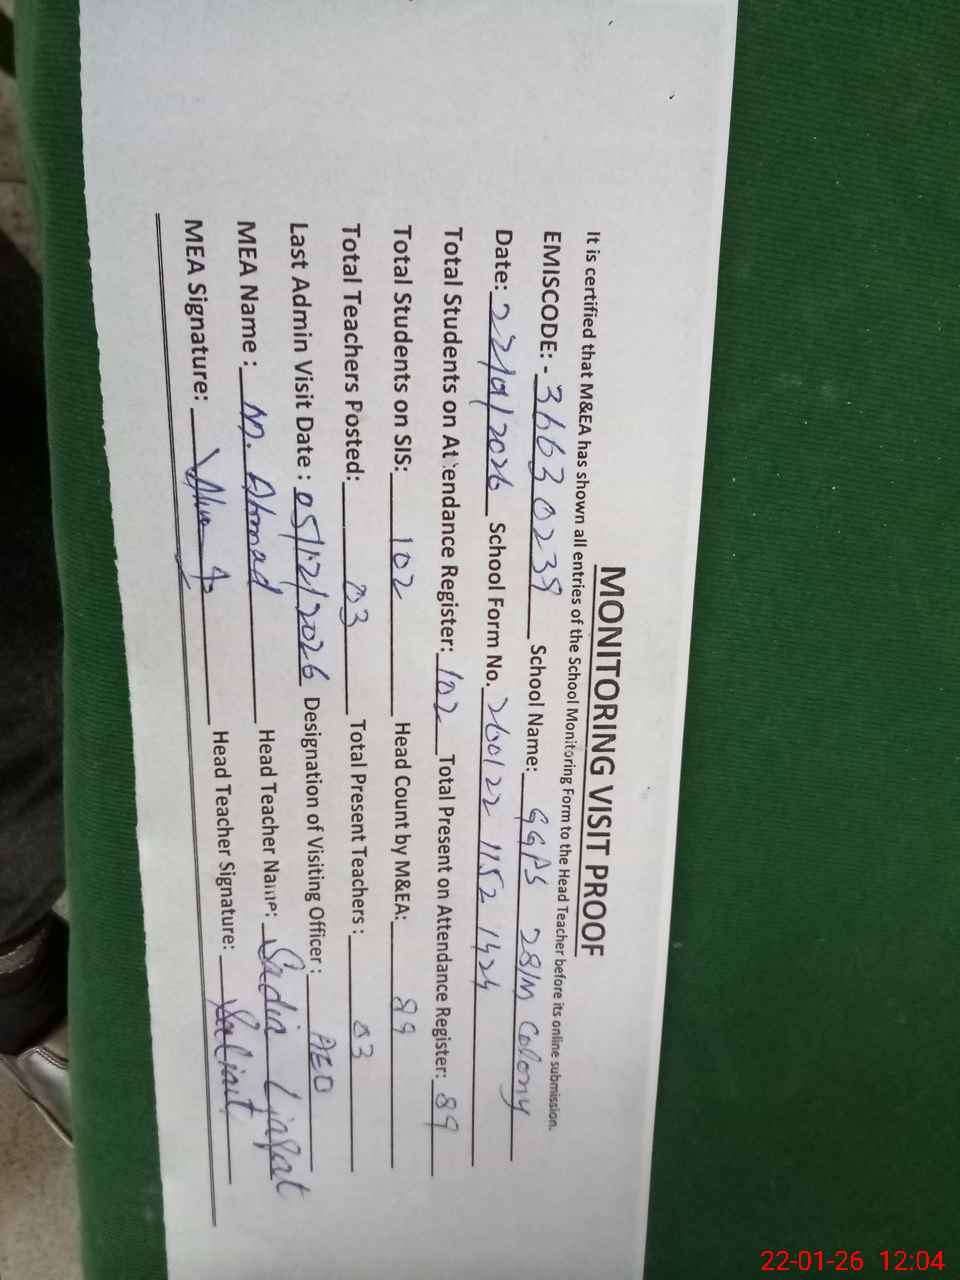 MONITORING VISIT PROOF
It is certified that M&EA has shown all entries of the School Monitoring Form to the Head Teacher before its online submission.
EMISCODE: - 36630239 School Name: GGPS 28/M Colony
Date: 22/01/2026 School Form No. 260122 1152 1424
Total Students on Attendance Register: 102 Total Present on Attendance Register: 89
Total Students on SIS: 102 Head Count by M&EA: 89
Total Teachers Posted: 03 Total Present Teachers : 03
Last Admin Visit Date : 05/12/2026 Designation of Visiting Officer : AEO
MEA Name : M. Ahmad Head Teacher Name: Sadia Liaqat
MEA Signature: Head Teacher Signature:
22-01-26 12:04